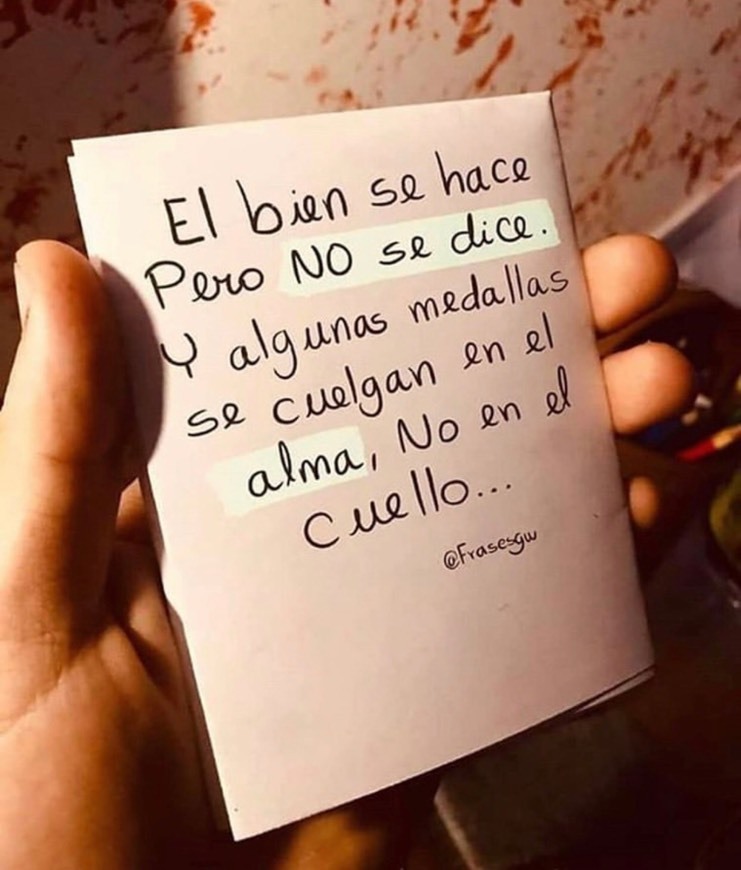 El bien se hace
Pero NO se dice.
Y algunas medallas
se cuelgan en el
alma, No en el
cuello...
@Frasesgw